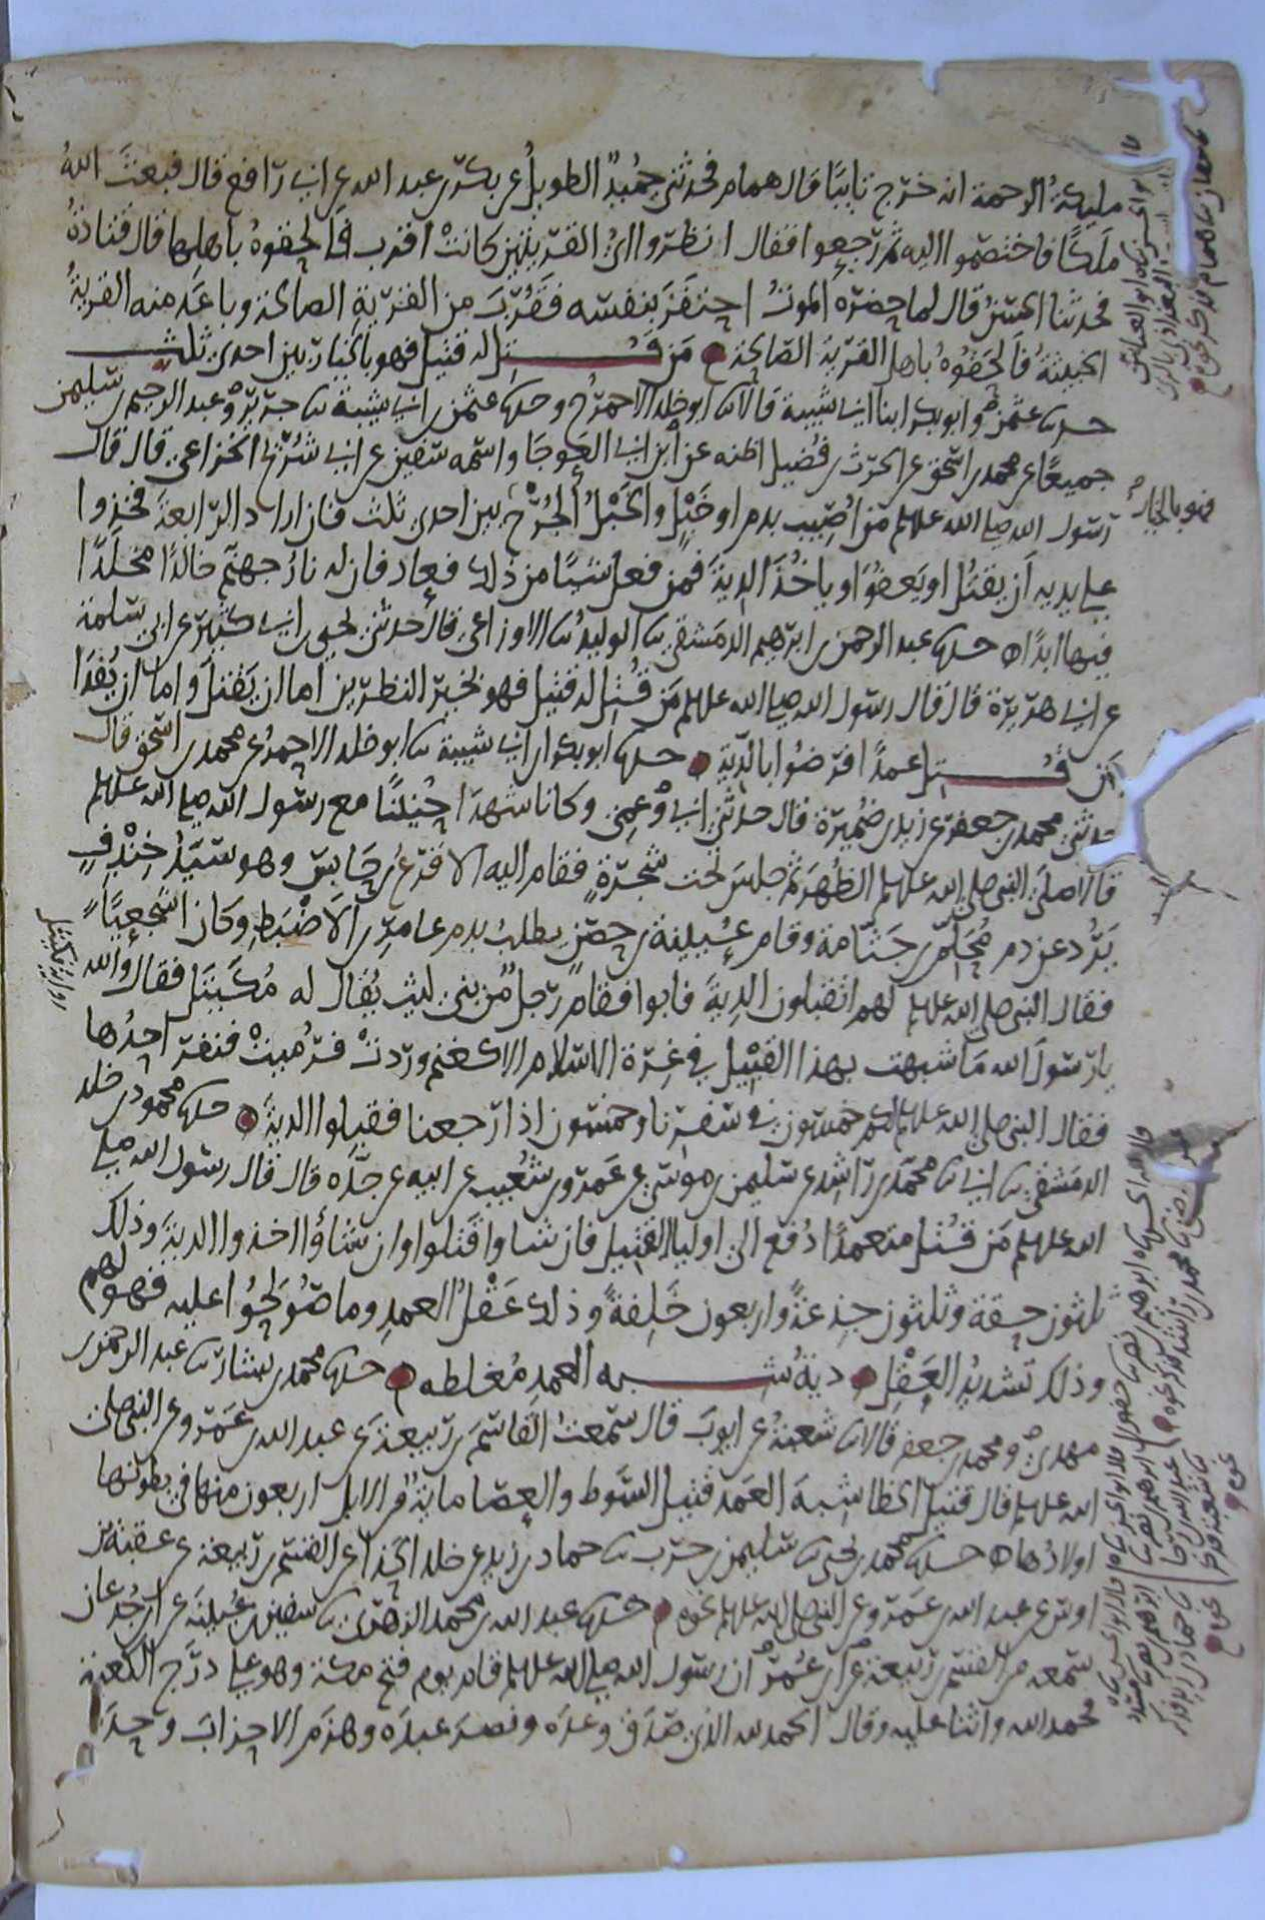 مليكة الرحمة انه خرج تايبا قال همام فحدثني حميد الطويل عن بكر بن عبد الله عن ابي رافع قال فبعث الله
ملكا فاختصموا اليه ثم رجعوا فقال انظروا الى القريتين كانت اقرب فالحقوه باهلها قال قتادة
فحدثنا الحسن قال لما حضره الموت احتفز بنفسه فقرب من القرية الصالحة وباعد منه القرية
الخبيثة فالحقوه باهل القرية الصالحة من قتل له قتيل فهو بالخيار بين احدى ثلث
حدثنا عثمن وابو بكر ابنا ابي شيبة قالا ثنا ابو خلد الاحمر ح وحدثنا عثمن بن ابي شيبة ثنا جرير وعبد الرحيم بن سليمن
جميعا عن محمد بن اسحق عن الحرث بن فضيل اظنه عن ابن ابي العوجا واسمه سفين عن ابي شريح الخزاعي قال قال
رسول الله صلى الله عليه وسلم من اصيب بدم او خبل والخبل الجرح بين احدى ثلث فان اراد الرابعة فخذوا
على يديه ان يقتل او يعفو او ياخذ الدية فمن فعل شيئا من ذلك فعاد فان له نار جهنم خالدا مخلدا
فيها ابدا حدثنا عبد الرحمن بن ابرهيم الدمشقي ثنا الوليد ثنا الاوزاعي قال حدثني يحيى بن ابي كثير عن ابي سلمة
عن ابي هريرة قال قال رسول الله صلى الله عليه وسلم من قتل له قتيل فهو بخير النظرين اما ان يقتل واما ان يفدا
من قتل عمدا فرضوا بالدية حدثنا ابو بكر بن ابي شيبة ثنا ابو خلد الاحمر عن محمد بن اسحق قال
حدثني محمد بن جعفر عن زيد بن ضميرة قال حدثني ابي وعمي وكانا شهدا حنينا مع رسول الله صلى الله عليه وسلم
قالا صلى النبي صلى الله عليه وسلم الظهر ثم جلس تحت شجرة فقام اليه الاقرع بن حابس وهو سيد خندف
يرد عن دم محلم بن جثامة وقام عيينة بن حصن يطلب بدم عامر بن الاضبط وكان اشجعيا
فقال النبي صلى الله عليه وسلم لهم اتقبلون الدية فابوا فقام رجل من بني ليث يقال له مكيتل فقال والله
يا رسول الله ما شبهت بهذا القتيل في غرة الاسلام الا كغنم وردت فرميت فنفر احدها
فقال النبي صلى الله عليه وسلم لكم خمسون في سفرنا وخمسون اذا رجعنا فقبلوا الدية حدثنا محمود بن خلد
الدمشقي ثنا ابي ثنا محمد بن راشد عن سليمن بن موسى عن عمرو بن شعيب عن ابيه عن جده قال قال رسول الله صلى
الله عليه وسلم من قتل متعمدا دفع الى اوليا القتيل فان شاوا قتلوا وان شاؤا اخذوا الدية وذلك
ثلثون حقة وثلثون جذعة واربعون خلفة وذلك عقل العمد وما صولحوا عليه فهو لهم
وذلك تشديد العقل دية شبه العمد مغلظه حدثنا محمد بن بشار ثنا عبد الرحمن بن
مهدي ومحمد بن جعفر قالا ثنا شعبة عن ايوب قال سمعت القاسم بن ربيعة عن عبد الله بن عمرو عن النبي صلى
الله عليه وسلم قال قتيل الخطا شبه العمد قتيل السوط والعصا ماية من الابل اربعون منها في بطونها
اولادها حدثنا محمد بن يحيى ثنا سليمن بن حرب ثنا حماد بن زيد عن خلد الحذاء عن القسم بن ربيعة عن عقبة بن
اوس عن عبد الله بن عمرو عن النبي صلى الله عليه وسلم نحوه حدثنا عبد الله بن محمد الزهري ثنا سفين بن عيينة عن ابن جدعان
سمعه من القسم بن ربيعة عن ابن عمر ان رسول الله صلى الله عليه وسلم قام يوم فتح مكة وهو على درج الكعبة
فحمد الله واثنا عليه وقال الحمد لله الذي صدق وعده ونصر عبده وهزم الاحزاب وحده
فهو بالخيار